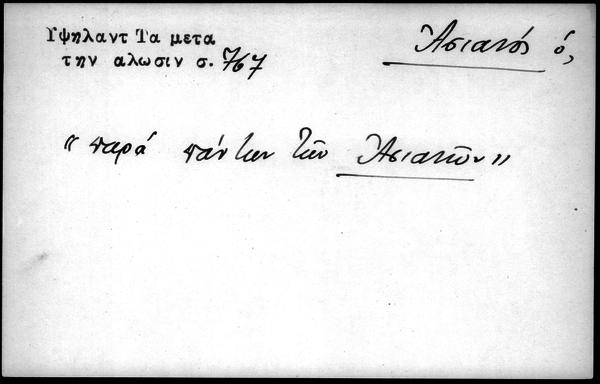 Υψηλαντ Τα μετα
την αλωσιν σ. 767
Ἀσιανός ὁ,
« παρά πάντων τῶν Ἀσιανῶν »